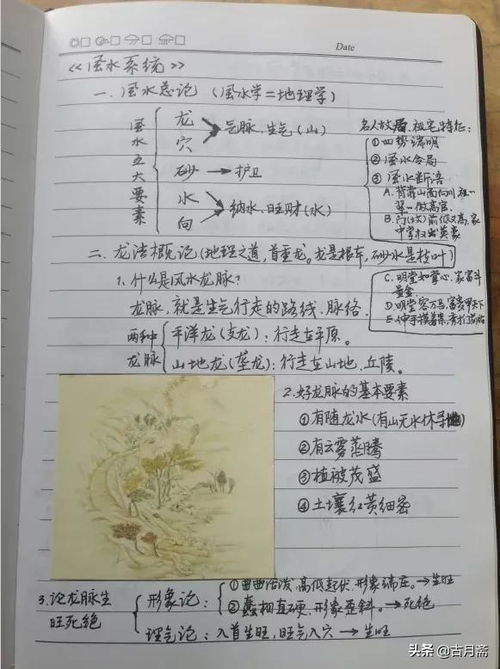 Date
《风水系统》
一、风水总论(风水学=地理学)
风水五大要素
龙
穴
气脉、生气(山)
砂→护卫
水
向
纳水、旺财(水)
名人故居、祖宅特征:
①四势清明
②风水合局
③风水断语
A.背靠山面向川,祖
B.门(坟)前低又高,家
中掌权出英豪
C.明堂如掌心,家富斗
量金.
D.明堂容万马,富贵甲天下
E.伸手摸着案,
二、龙法概论(地理之道,首重龙。龙是根本,砂水是枝叶)
1.什么是风水龙脉?
龙脉,就是生气行走的路线、脉络.
两种龙脉
平洋龙(支龙):行走在平原。
山地龙(垄龙):行走在山地、丘陵。
2.好龙脉的基本要素
①有随龙水(有山无水休寻地)
②有云雾蒸腾
③植被茂盛
④土壤红黄细密
3.论龙脉生旺死绝
形象论:
①曲曲活泼,高低起伏,形象端庄。→生旺
②蠢粗直硬,形象歪斜。→死绝
理气论:入首生旺,旺气入穴→生旺
头条@古月斋